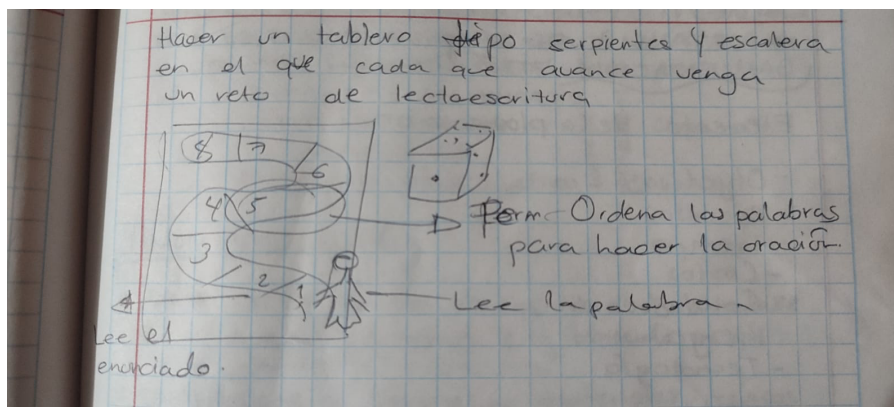 Hacer un tablero tipo serpientes y escalera
en el que cada que avance venga
un reto de lectoescritura
8 7
6
4 5
3
2 1
Ordena las palabras
para hacer la oración.
Lee la palabra
Lee el
enunciado.